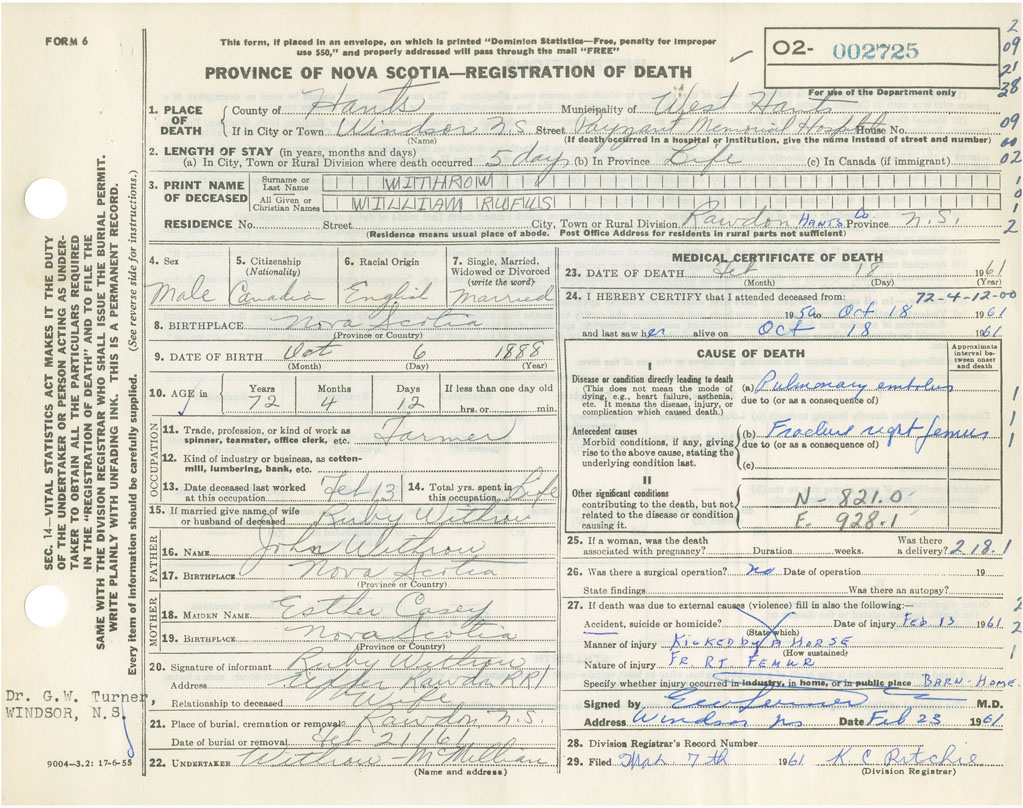 FORM 6
This form, if placed in an envelope, on which is printed "Dominion Statistics—Free, penalty for improper
use $50," and properly addressed will pass through the mail "FREE"
PROVINCE OF NOVA SCOTIA—REGISTRATION OF DEATH
02- 002725
For use of the Department only
2
09
21
28
09
00
02
1
0
1
2
1. PLACE OF DEATH
County of Hants Municipality of West Hants
If in City or Town Windsor N.S. Street Payzant Memorial Hospital House No.
(Name) (If death occurred in a hospital or institution, give the name instead of street and number)
2. LENGTH OF STAY (in years, months and days)
(a) In City, Town or Rural Division where death occurred 5 days (b) In Province Life (c) In Canada (if immigrant)
3. PRINT NAME OF DECEASED
Surname or Last Name WITHROW
All Given or Christian Names WILLIAM RUFUS
RESIDENCE No. Street City, Town or Rural Division Rawdon HANTS Co Province N.S.
(Residence means usual place of abode. Post Office Address for residents in rural parts not sufficient)
4. Sex Male
5. Citizenship (Nationality) Canadian
6. Racial Origin English
7. Single, Married, Widowed or Divorced (write the word) Married
8. BIRTHPLACE Nova Scotia
(Province or Country)
9. DATE OF BIRTH Oct 6 1888
(Month) (Day) (Year)
10. AGE in Years 72 Months 4 Days 12 If less than one day old hrs. or min.
OCCUPATION
11. Trade, profession, or kind of work as spinner, teamster, office clerk, etc. Farmer
12. Kind of industry or business, as cotton-mill, lumbering, bank, etc.
13. Date deceased last worked at this occupation Feb 13 14. Total yrs. spent in this occupation Life
15. If married give name of wife or husband of deceased Ruby Withrow
FATHER
16. NAME John Withrow
17. BIRTHPLACE Nova Scotia
(Province or Country)
MOTHER
18. MAIDEN NAME Esther Casey
19. BIRTHPLACE Nova Scotia
(Province or Country)
20. Signature of informant Ruby Withrow
Address Upper Rawdon RR1
Relationship to deceased Wife
21. Place of burial, cremation or removal Rawdon N.S.
Date of burial or removal Feb 21/61
22. UNDERTAKER Withrow - McMillan
(Name and address)
MEDICAL CERTIFICATE OF DEATH
23. DATE OF DEATH Feb 18 1961
(Month) (Day) (Year)
24. I HEREBY CERTIFY that I attended deceased from: 72-4-12-00
19 to Oct 18 1961
and last saw h alive on Oct 18 1961
CAUSE OF DEATH
Approximate interval between onset and death
I
Disease or condition directly leading to death
(This does not mean the mode of dying, e.g., heart failure, asthenia, etc. It means the disease, injury, or complication which caused death.)
(a) Pulmonary embolus
due to (or as a consequence of)
Antecedent causes
Morbid conditions, if any, giving rise to the above cause, stating the underlying condition last.
(b) Fracture right femur
due to (or as a consequence of)
(c)
1
1
1
II
Other significant conditions
contributing to the death, but not related to the disease or condition causing it.
N-821.0
E. 928.1
25. If a woman, was the death associated with pregnancy? Duration weeks. Was there a delivery? 218.1
26. Was there a surgical operation? no Date of operation 19
State findings Was there an autopsy?
27. If death was due to external causes (violence) fill in also the following:—
Accident, suicide or homicide? Date of injury Feb 13 1961
(State which)
Manner of injury KICKED BY A HORSE
(How sustained)
Nature of injury FR RT. FEMUR
Specify whether injury occurred in industry, in home, or in public place BARN-HOME.
2
2
1
Signed by M.D.
Address Windsor NS Date Feb 23 1961
28. Division Registrar's Record Number
29. Filed Mar. 7th 1961 K C Ritchie
(Division Registrar)
SEC. 14—VITAL STATISTICS ACT MAKES IT THE DUTY
OF THE UNDERTAKER OR PERSON ACTING AS UNDER-
TAKER TO OBTAIN ALL THE PARTICULARS REQUIRED
IN THE "REGISTRATION OF DEATH" AND TO FILE THE
SAME WITH THE DIVISION REGISTRAR WHO SHALL ISSUE THE BURIAL PERMIT.
WRITE PLAINLY WITH UNFADING INK. THIS IS A PERMANENT RECORD.
Every item of information should be carefully supplied. (See reverse side for instructions.)
Dr. G.W. Turner,
WINDSOR, N.S.
9004—3.2: 17-6-55